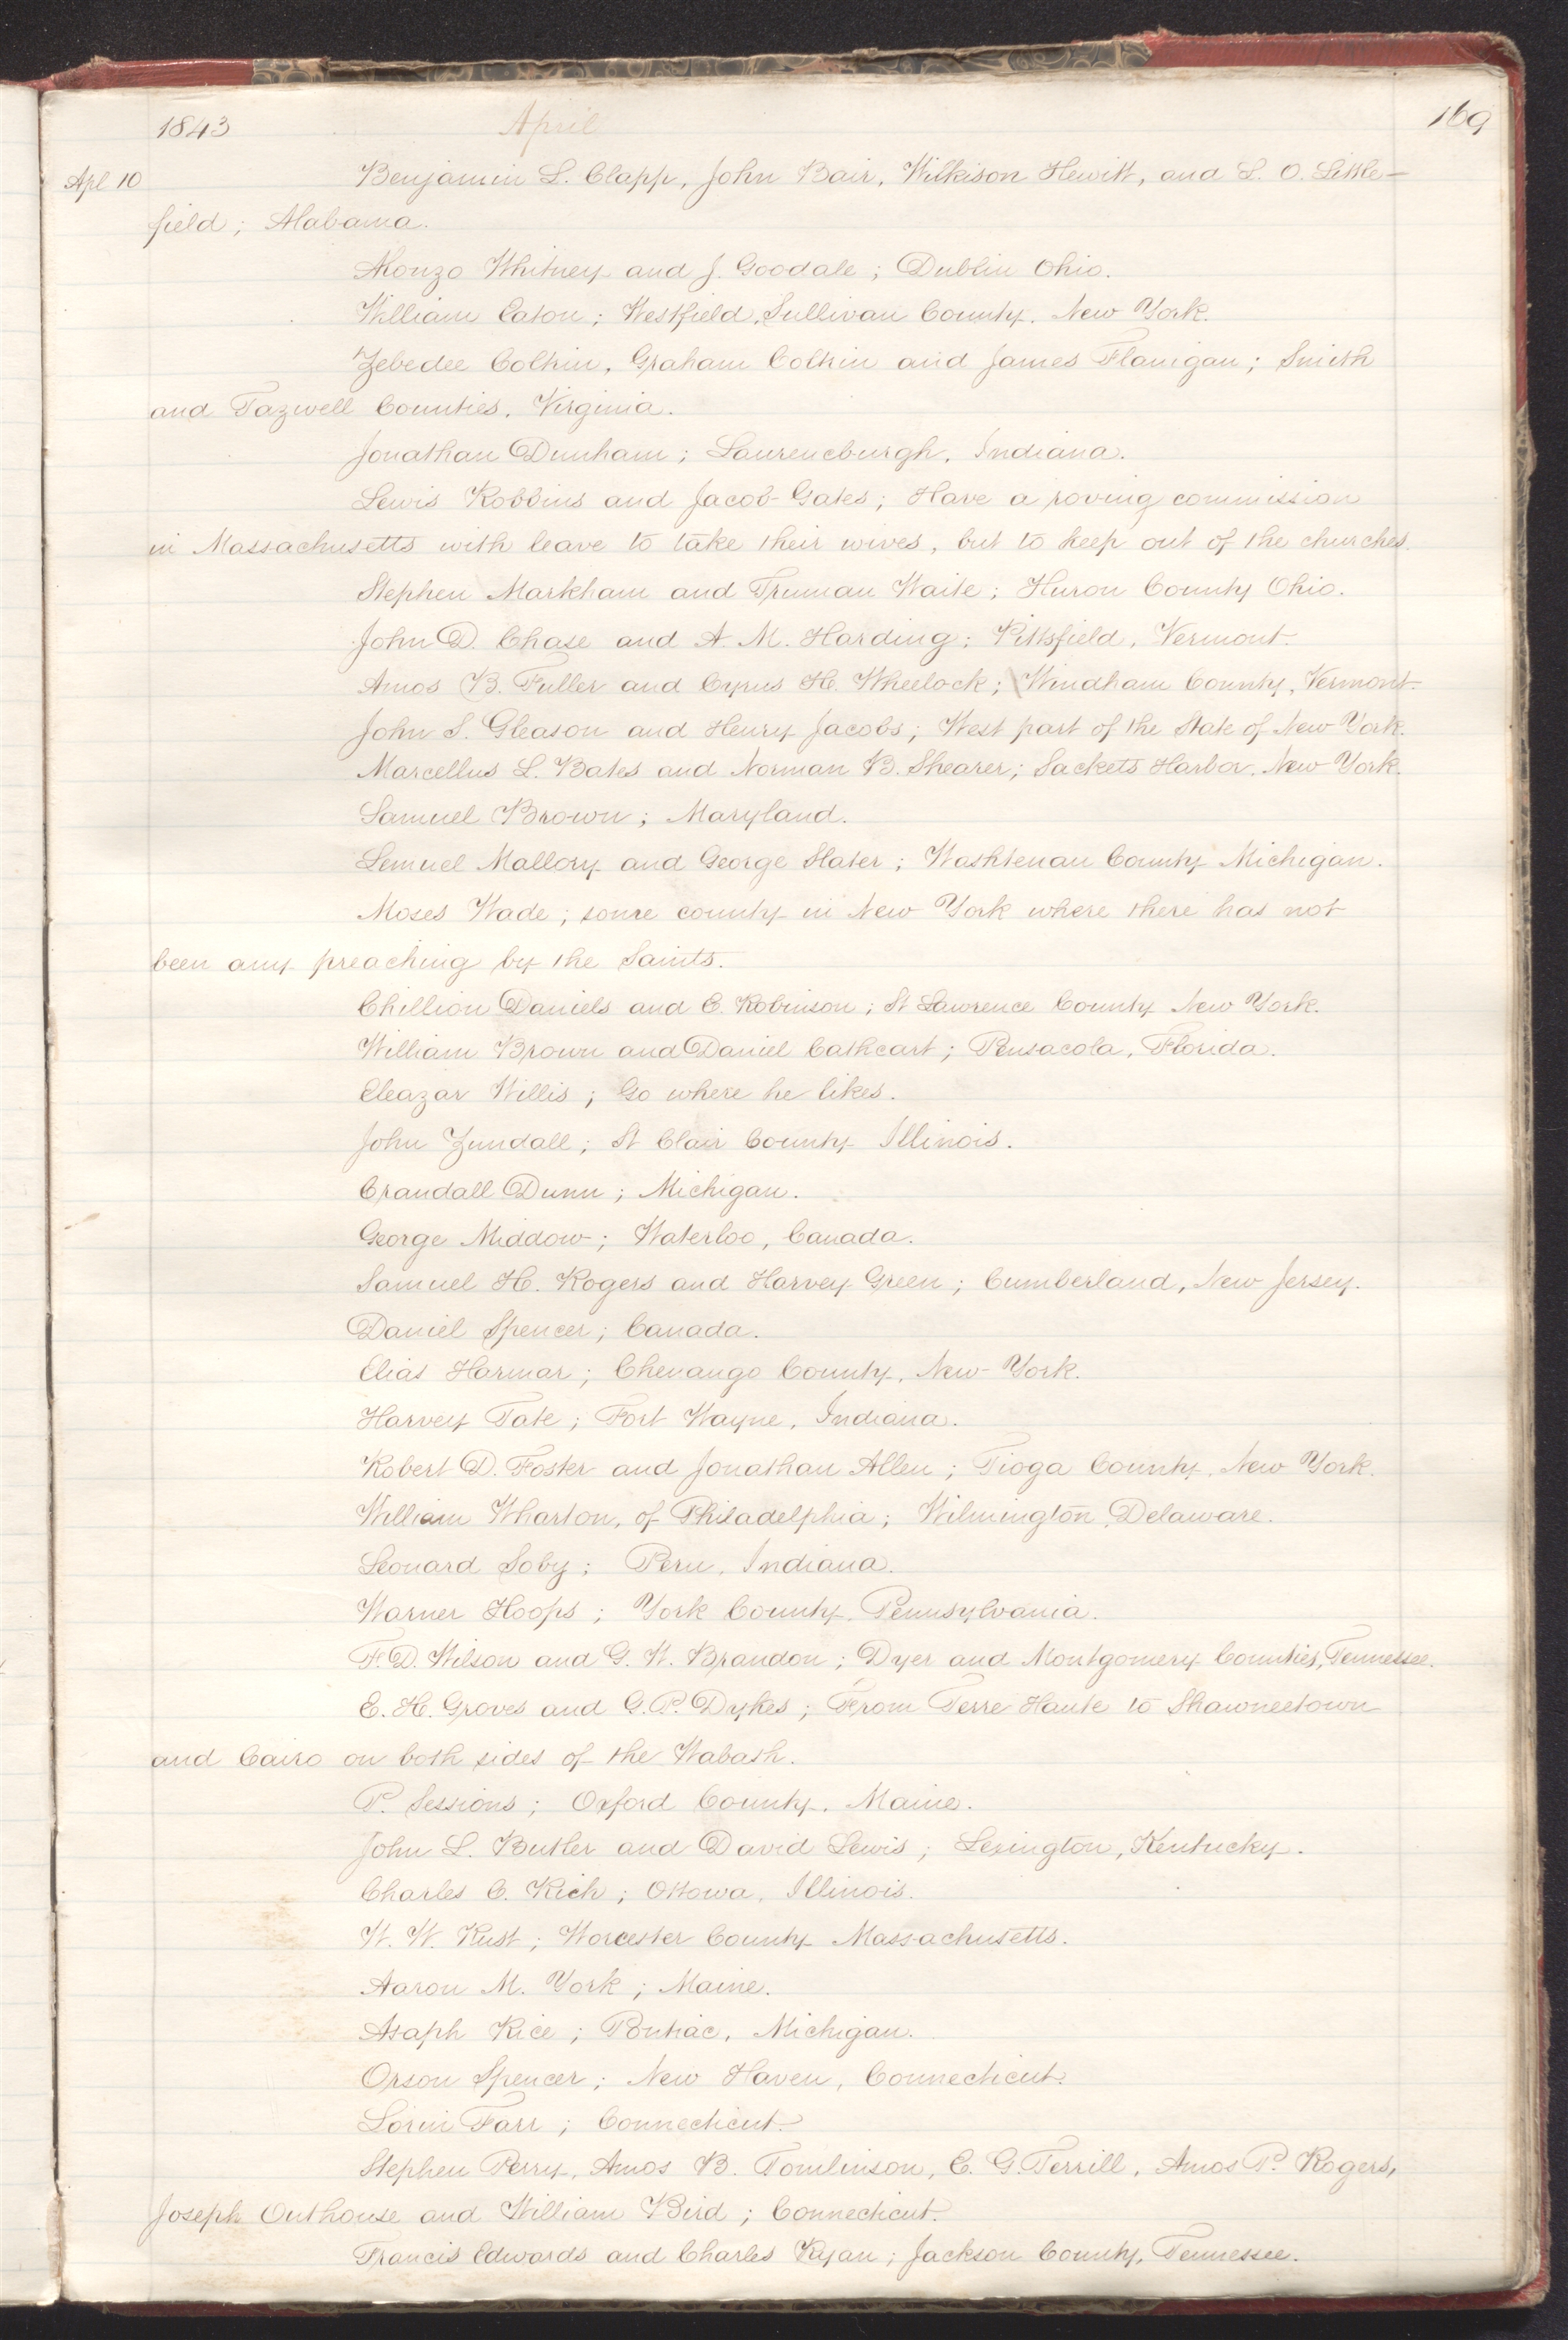 1843 April 169
Apl 10 Benjamin L. Clapp, John Bair, Wilkison Hewitt, and L. O. Little-
field; Alabama.
Alonzo Whitney and J. Goodale; Dublin Ohio.
William Eaton; Westfield, Sullivan County, New York.
Zebedee Coltrin, Graham Coltrin and James Flanigan; Smith
and Tazwell Counties, Virginia.
Jonathan Dunham; Laurenceburgh, Indiana.
Lewis Robbins and Jacob Gates; Have a roving commission
in Massachusetts with leave to take their wives, but to keep out of the churches.
Stephen Markham and Truman Waite; Huron County Ohio.
John D. Chase and A. M. Harding; Pittsfield, Vermont.
Amos B. Fuller and Cyrus H. Wheelock; Windham County, Vermont.
John S. Gleason and Henry Jacobs; West part of the State of New York.
Marcellus L. Bates and Norman B. Shearer; Sackets Harbor, New York.
Samuel Brown; Maryland.
Lemuel Mallory and George Slater; Washtenau County Michigan.
Moses Wade; some county in New York where there has not
been any preaching by the Saints.
Chillion Daniels and C. Robinson; St Lawrence County New York.
William Brown and Daniel Cathcart; Pensacola, Florida.
Eleazar Willis; Go where he likes.
John Zundall; St Clair County Illinois.
Crandall Dunn; Michigan.
George Middow; Waterloo, Canada.
Samuel H. Rogers and Harvey Green; Cumberland, New Jersey.
Daniel Spencer; Canada.
Elias Harmar; Chenango County, New York.
Harvey Tate; Fort Wayne, Indiana.
Robert D. Foster and Jonathan Allen; Tioga County, New York.
William Wharton, of Philadelphia; Wilmington, Delaware.
Leonard Soby; Peru, Indiana.
Warner Hoops; York County, Pennsylvania.
F. D. Wilson and G. W. Brandon; Dyer and Montgomery Counties, Tennessee.
E. H. Groves and G. P. Dykes; From Terre Haute to Shawneetown
and Cairo on both sides of the Wabash.
P. Sessions; Oxford County, Maine.
John L. Butler and David Lewis; Lexington, Kentucky.
Charles C. Rich; Ottowa, Illinois.
W. W. Rust; Worcester County Massachusetts.
Aaron M. York; Maine.
Asaph Rice; Pontiac, Michigan.
Orson Spencer; New Haven, Connecticut.
Lorin Farr; Connecticut.
Stephen Perry, Amos B. Tomlinson, E. G. Terrill, Amos P. Rogers,
Joseph Outhouse and William Bird; Connecticut.
Francis Edwards and Charles Ryan; Jackson County, Tennessee.